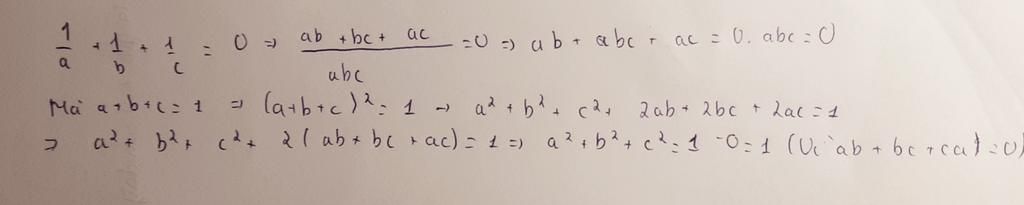 1/a + 1/b + 1/c = 0 => (ab + bc + ac)/abc = 0 => ab + abc + ac = 0. abc = 0
Mà a+b+c = 1 => (a+b+c)² = 1 → a² + b² + c² + 2ab + 2bc + 2ac = 1
=> a² + b² + c² + 2(ab + bc + ac) = 1 => a² + b² + c² = 1 - 0 = 1 (Vì ab + bc + ca) = 0)